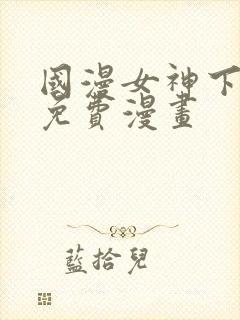 國漫女神下
免費漫畫
藍拾兒